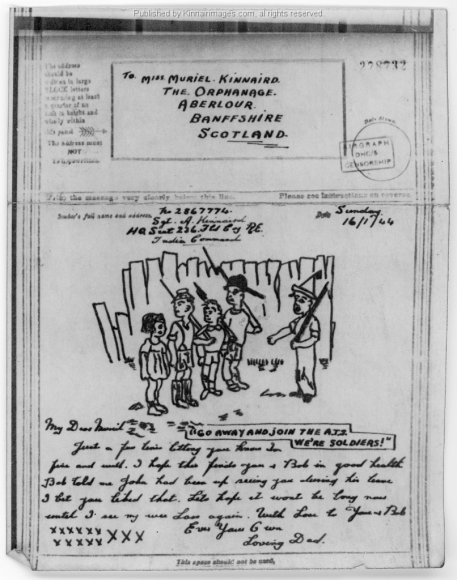 Published by Kinnairdimages.com, all rights reserved
278732
The address
should be
written in large
BLOCK letters
wholly within
this panel
The address must
NOT
be typewritten.
To. MISS. MURIEL. KINNAIRD.
THE. ORPHANAGE.
ABERLOUR.
BANFFSHIRE
SCOTLAND.
CENSORSHIP
the message very clearly below this line.
Please see Instructions on reverse.
Sender's full name and address
No 2867774.
Sgt. A. Kinnaird
HQ Sect 226. Fld Coy R.E.
India Command
Date Sunday
16/1/44
"GO AWAY AND JOIN THE A.T.S.
WE'RE SOLDIERS!"
My Dear Muriel
Just a few lines letting you know Im
fine and well. I hope this finds you & Bob in good health
Bob told me John had been up seeing you during his leave
I bet you liked that. Lets hope it wont be long now
until I see my wee Lass again. With Love to You & Bob
Ever Your Own
Loving Dad.
xxxxxx
xxxxxx XXX
This space should not be used.